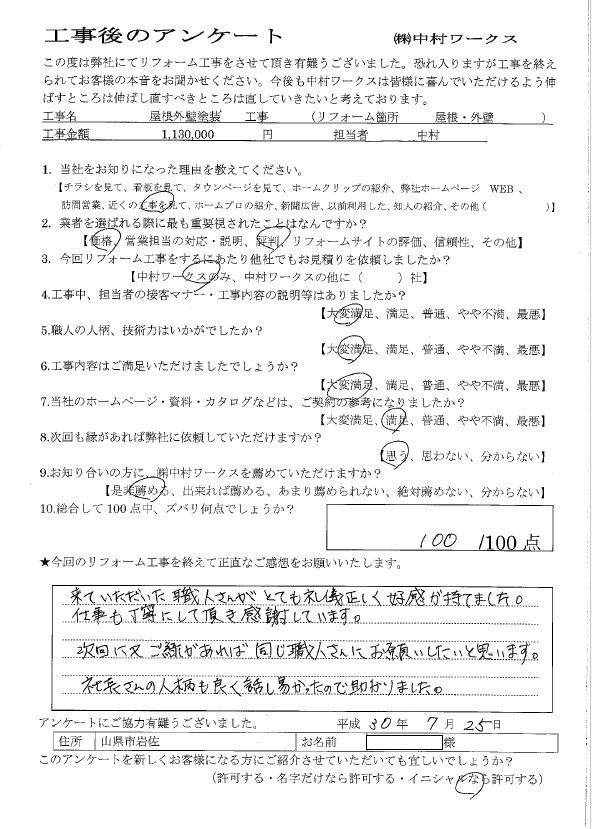 工事後のアンケート ㈱中村ワークス
この度は弊社にてリフォーム工事をさせて頂き有難うございました。恐れ入りますが工事を終え
られてお客様の本音をお聞かせください。今後も中村ワークスは皆様に喜んでいただけるよう伸
ばすところは伸ばし直すべきところは直していきたいと考えております。
工事名 屋根外壁塗装 工事 （リフォーム箇所 屋根・外壁 ）
工事金額 1,130,000 円 担当者 中村
1. 当社をお知りになった理由を教えてください。
【チラシを見て、看板を見て、タウンページを見て、ホームクリップの紹介、弊社ホームページ WEB 、
訪問営業、近くの工事を見て、ホームプロの紹介、新聞広告、以前利用した、知人の紹介、その他（ ）】
2. 業者を選ばれる際に最も重要視されたことはなんですか？
【価格、営業担当の対応・説明、評判、リフォームサイトの評価、信頼性、その他】
3. 今回リフォーム工事をするにあたり他社でもお見積りを依頼しましたか？
【中村ワークスのみ、中村ワークスの他に（ ）社】
4.工事中、担当者の接客マナー・工事内容の説明等はありましたか？
【大変満足、満足、普通、やや不満、最悪】
5.職人の人柄、技術力はいかがでしたか？
【大変満足、満足、普通、やや不満、最悪】
6.工事内容はご満足いただけましたでしょうか？
【大変満足、満足、普通、やや不満、最悪】
7.当社のホームページ・資料・カタログなどは、ご契約の参考になりましたか？
【大変満足、満足、普通、やや不満、最悪】
8.次回も縁があれば弊社に依頼していただけますか？
【思う、思わない、分からない】
9.お知り合いの方に、㈱中村ワークスを薦めていただけますか？
【是非薦める、出来れば薦める、あまり薦められない、絶対薦めない、分からない】
10.総合して100点中、ズバリ何点でしょうか？
100 /100点
★今回のリフォーム工事を終えて正直なご感想をお願いいたします。
来ていただいた職人さんがとても礼儀正しく好感が持てました。
仕事も丁寧にして頂き感謝しています。
次回に又ご縁があれば同じ職人さんにお願いしたいと思います。
社長さんの人柄も良く話し易かったので助かりました。
アンケートにご協力有難うございました。 平成 30 年 7 月 25 日
住所 山県市岩佐 お名前 様
このアンケートを新しくお客様になる方にご紹介させていただいても宜しいでしょうか？
（許可する・名字だけなら許可する・イニシャルなら許可する）